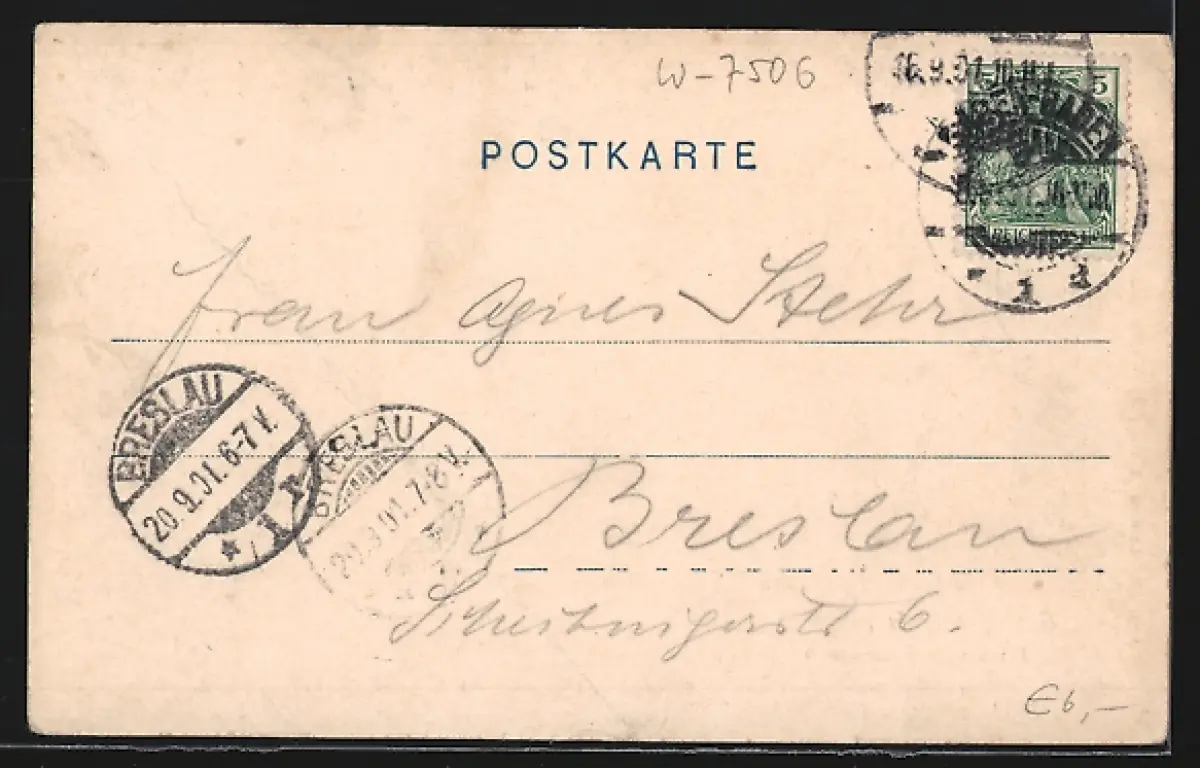 W-7506
POSTKARTE
5
16.9.01.10-11
BADEN-BADEN
Frau Agnes Stehr
BRESLAU
20.9.01.6-7 V.
* 1 r
BRESLAU
20.9.01.7-8 V.
Breslau
Scheitnigerstr 6.
E6,-